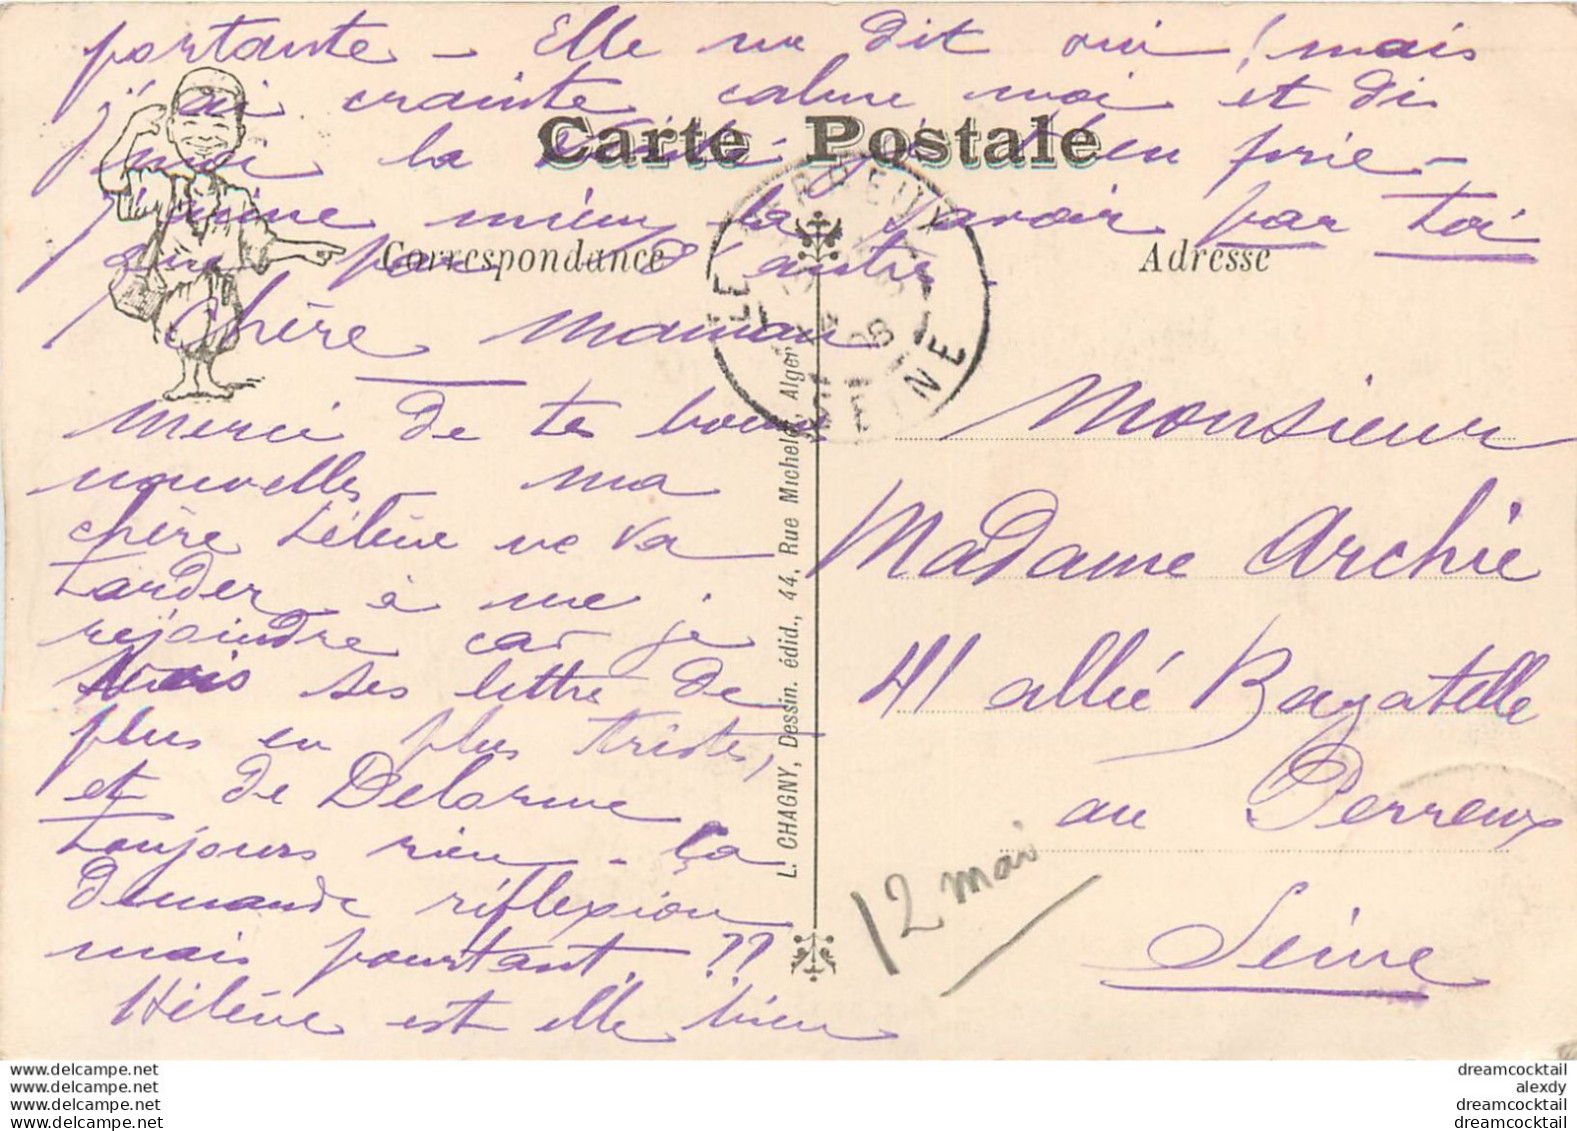 portante - Elle me dit oui ! mais
j'ai crainte calme moi et di
moi la vérité je t'en prie -
j'aime mieux la savoir par toi
que par d'autre.
Carte Postale
Correspondance
Adresse
LE PERREUX
SEINE
Chère maman
Merci de tes bonne
nouvelles - ma
chère Hélène ne va
tarder à me
rejoindre car je
vois ses lettre de
plus en plus tristes,
et de Delorme
toujours rien - ça
demande réflexion
mais pourtant ??
Hélène est elle bien
L. CHAGNY, Dessin. édid., 44, Rue Michelet, Alger
Monsieur
Madame Archie
41 allée Bagatelle
au Perreux
Seine
12 mai
www.delcampe.net
www.delcampe.net
www.delcampe.net
www.delcampe.net
dreamcocktail
alexdy
dreamcocktail
dreamcocktail